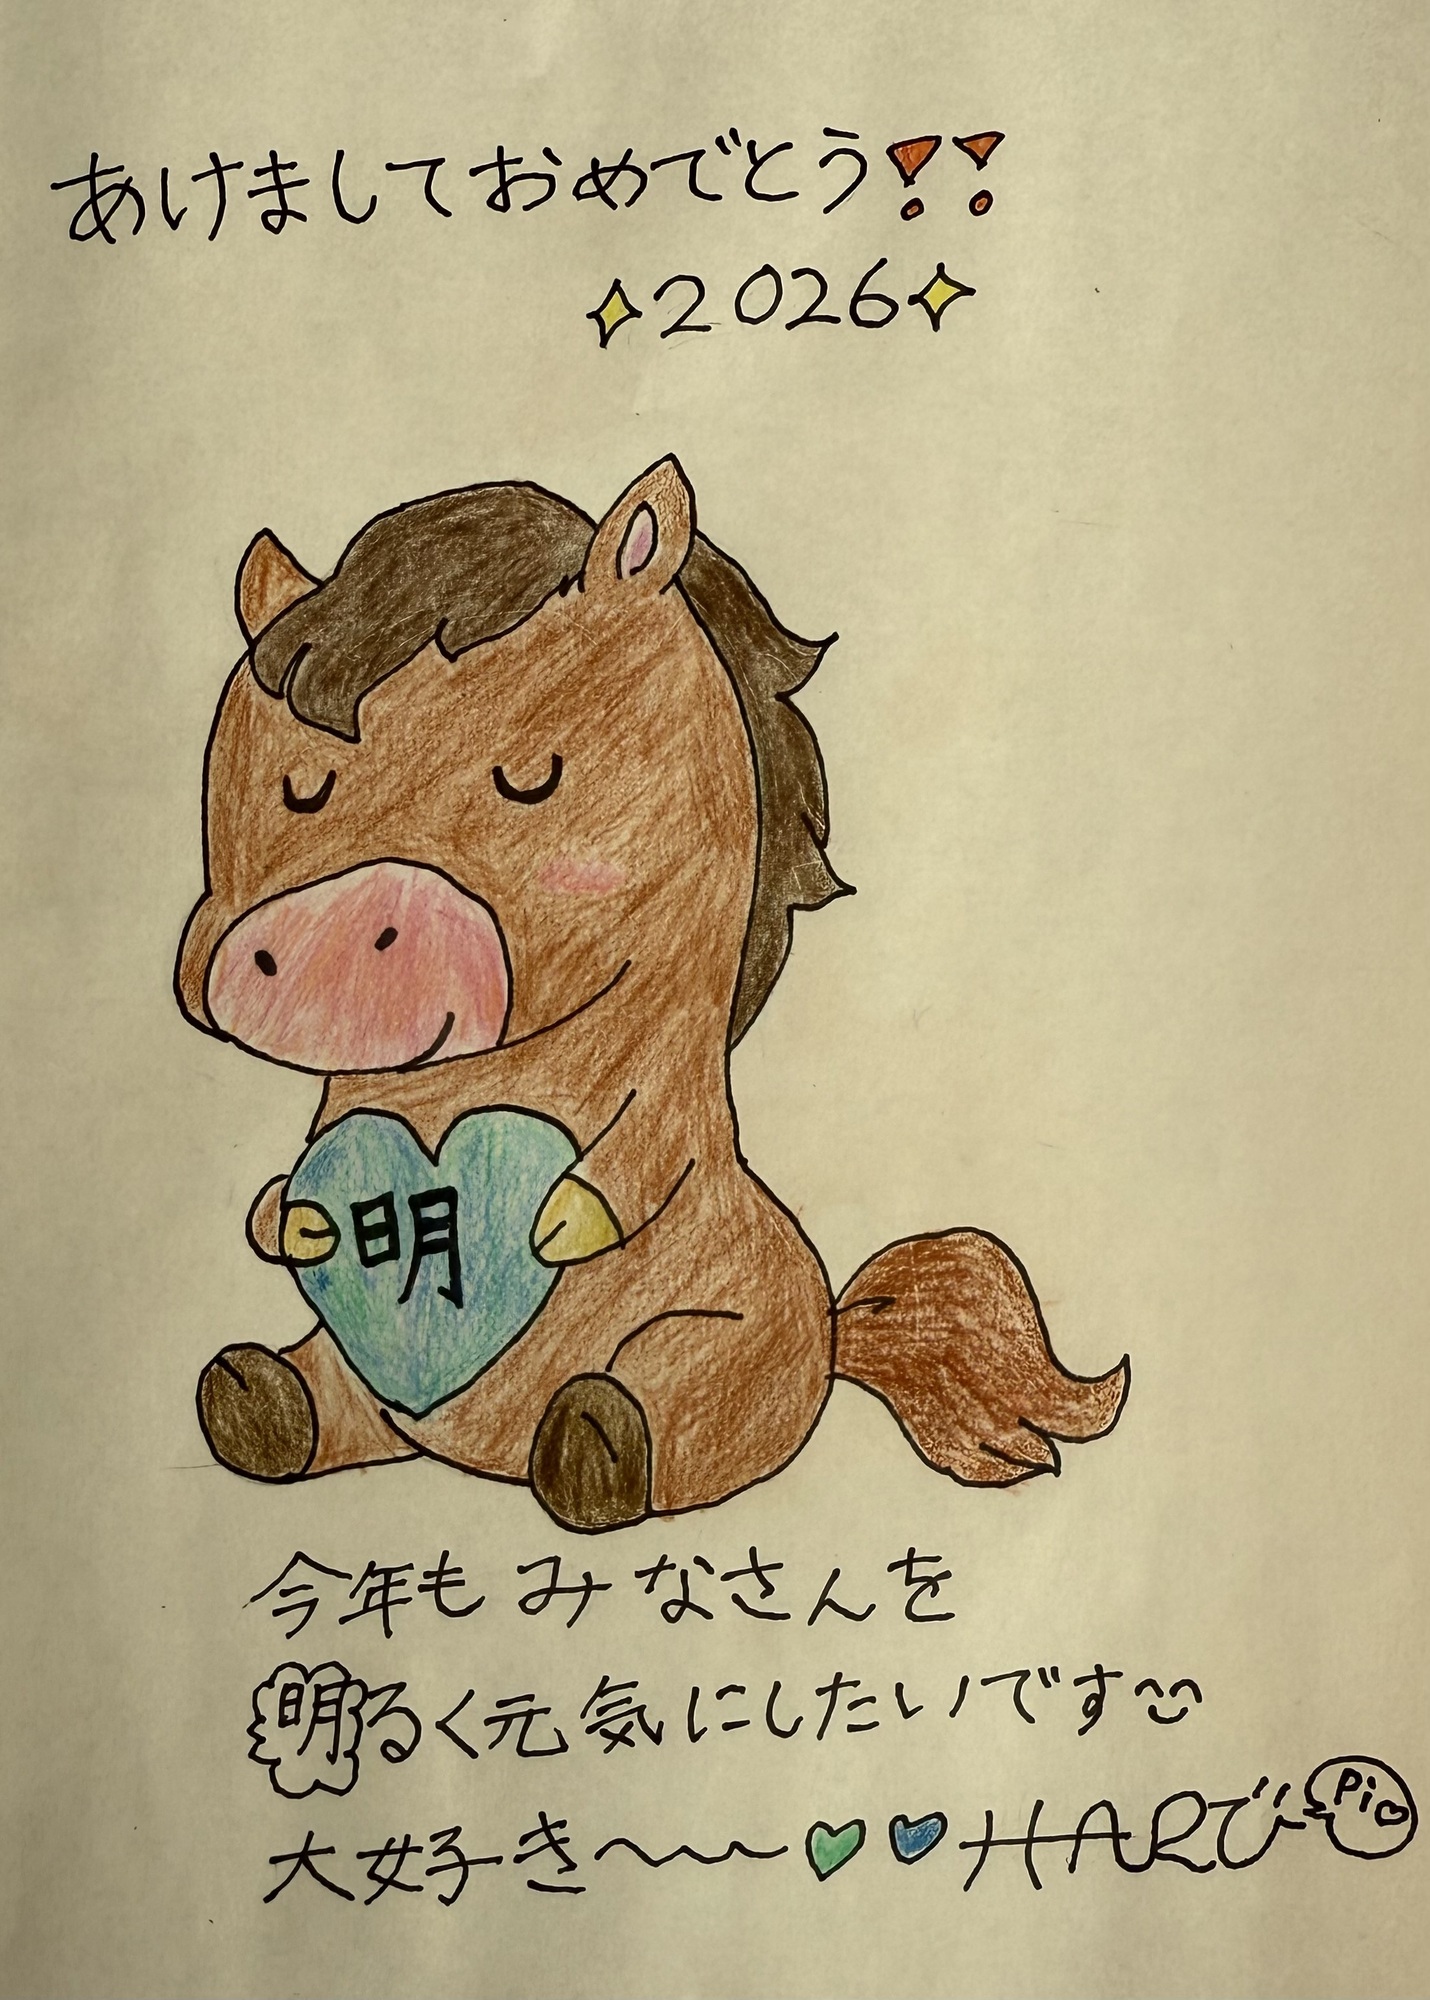 あけましておめでとう!!
2026
明
今年もみなさんを
明るく元気にしたいです
大好き〜〜 HARUび
Pi